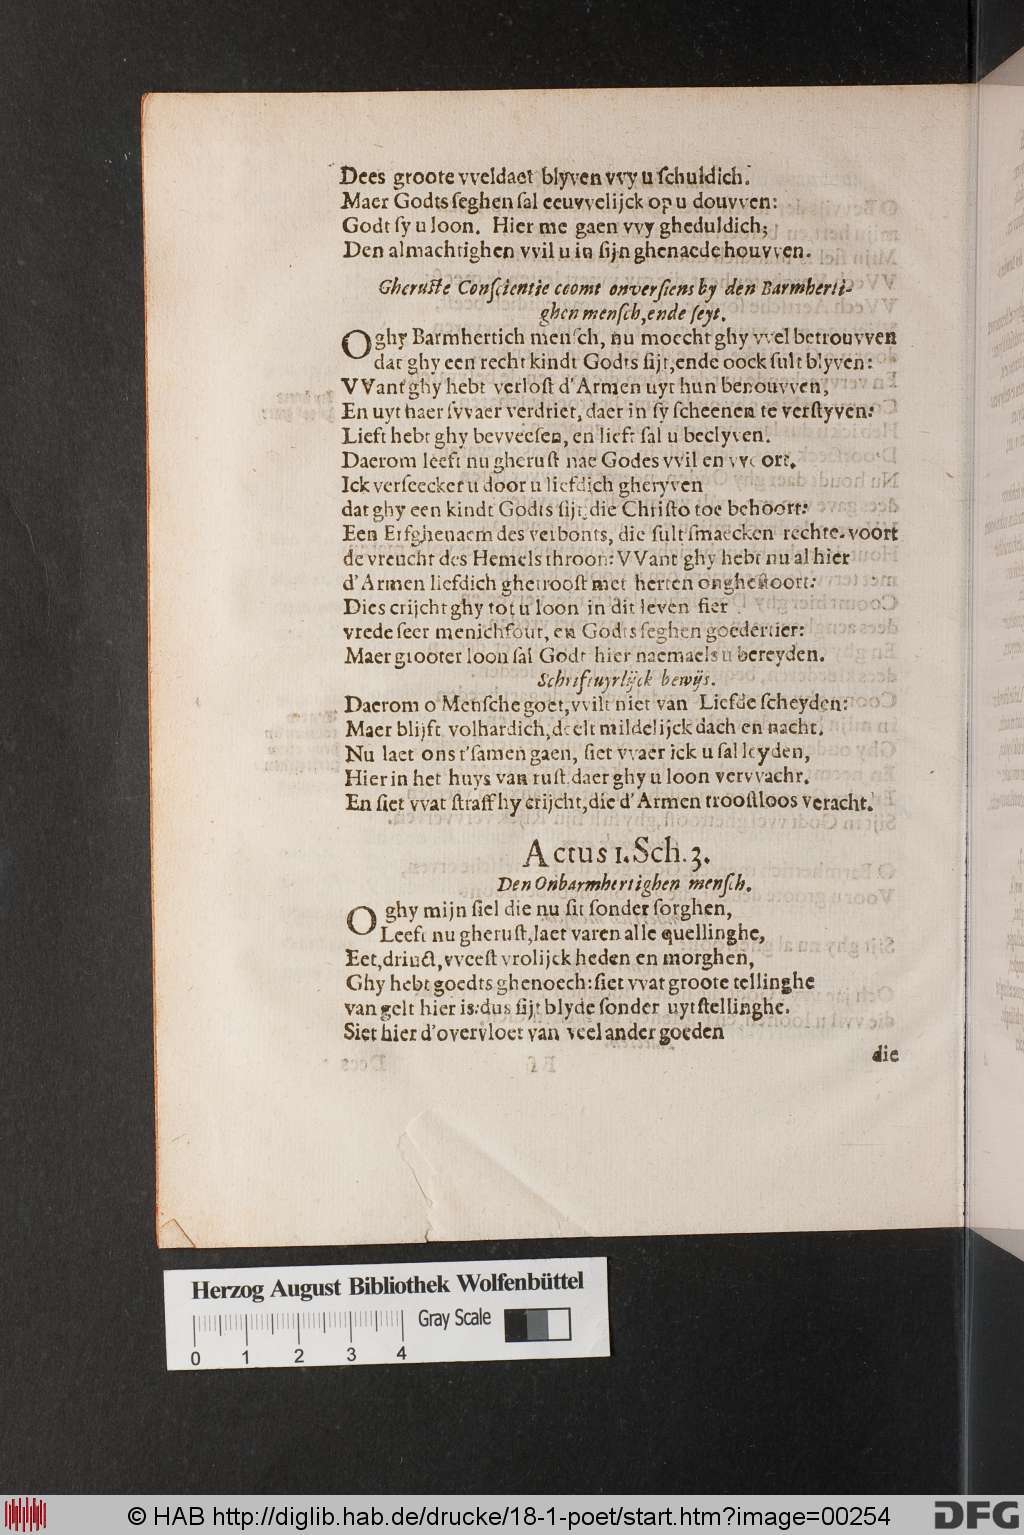 Dees groote vveldaet blyven vvy u ſchuldich.
Maer Godts ſeghen ſal eeuvvelijck op u douvven:
Godt ſy u loon. Hier me gaen vvy gheduldich;
Den almachtighen vvil u in ſijn ghenaede houvven.
Gheruſte Conſcientie coomt onverſiens by den Barmherti-
ghen menſch, ende ſeyt.
O ghy Barmhertich menſch, nu moecht ghy vvel betrouvven
dat ghy een recht kindt Godts ſijt, ende oock ſult blyven:
VVant ghy hebt verloſt d'Armen uyt hun benouvven,
En uyt haer ſvvaer verdriet, daer in ſy ſcheenen te verſtyven:
Lieft hebt ghy bevveeſen, en lieft ſal u beclyven.
Daerom leeft nu gheruſt nae Godes vvil en vvoort.
Ick verſeecket u door u liefdich gheryven
dat ghy een kindt Godts ſijt, die Chriſto toe behoort:
Een Erfghenaem des verbonts, die ſult ſmaecken rechte-voort
de vreucht des Hemels throon: VVant ghy hebt nu al hier
d'Armen liefdich ghetrooſt met herten ongheſtoort:
Dies crijcht ghy tot u loon in dit leven fier
vrede ſeer menichfout, en Godts ſeghen goedertier:
Maer grooter loon ſal Godt hier naemaels u bereyden.
Schriftuyrlijck bewijs.
Daerom o Menſche goet, vvilt niet van Liefde ſcheyden:
Maer blijft volhardich, deelt mildelijck dach en nacht.
Nu laet ons t'ſamen gaen, ſiet vvaer ick u ſal leyden,
Hier in het huys van ruſt daer ghy u loon vervvacht.
En ſiet vvat ſtraff hy crijcht, die d'Armen trooſtloos veracht.
Actus 1. Sch. 3.
Den Onbarmhertighen menſch.
O ghy mijn ſiel die nu ſit ſonder ſorghen,
Leeft nu gheruſt, laet varen alle quellinghe,
Eet, drinct, vveeſt vrolijck heden en morghen,
Ghy hebt goedts ghenoech: ſiet vvat groote tellinghe
van gelt hier is: dus ſijt blyde ſonder uytſtellinghe.
Siet hier d'overvloet van veel ander goeden
die
Herzog August Bibliothek Wolfenbüttel
Gray Scale
0 1 2 3 4
© HAB http://diglib.hab.de/drucke/18-1-poet/start.htm?image=00254
DFG